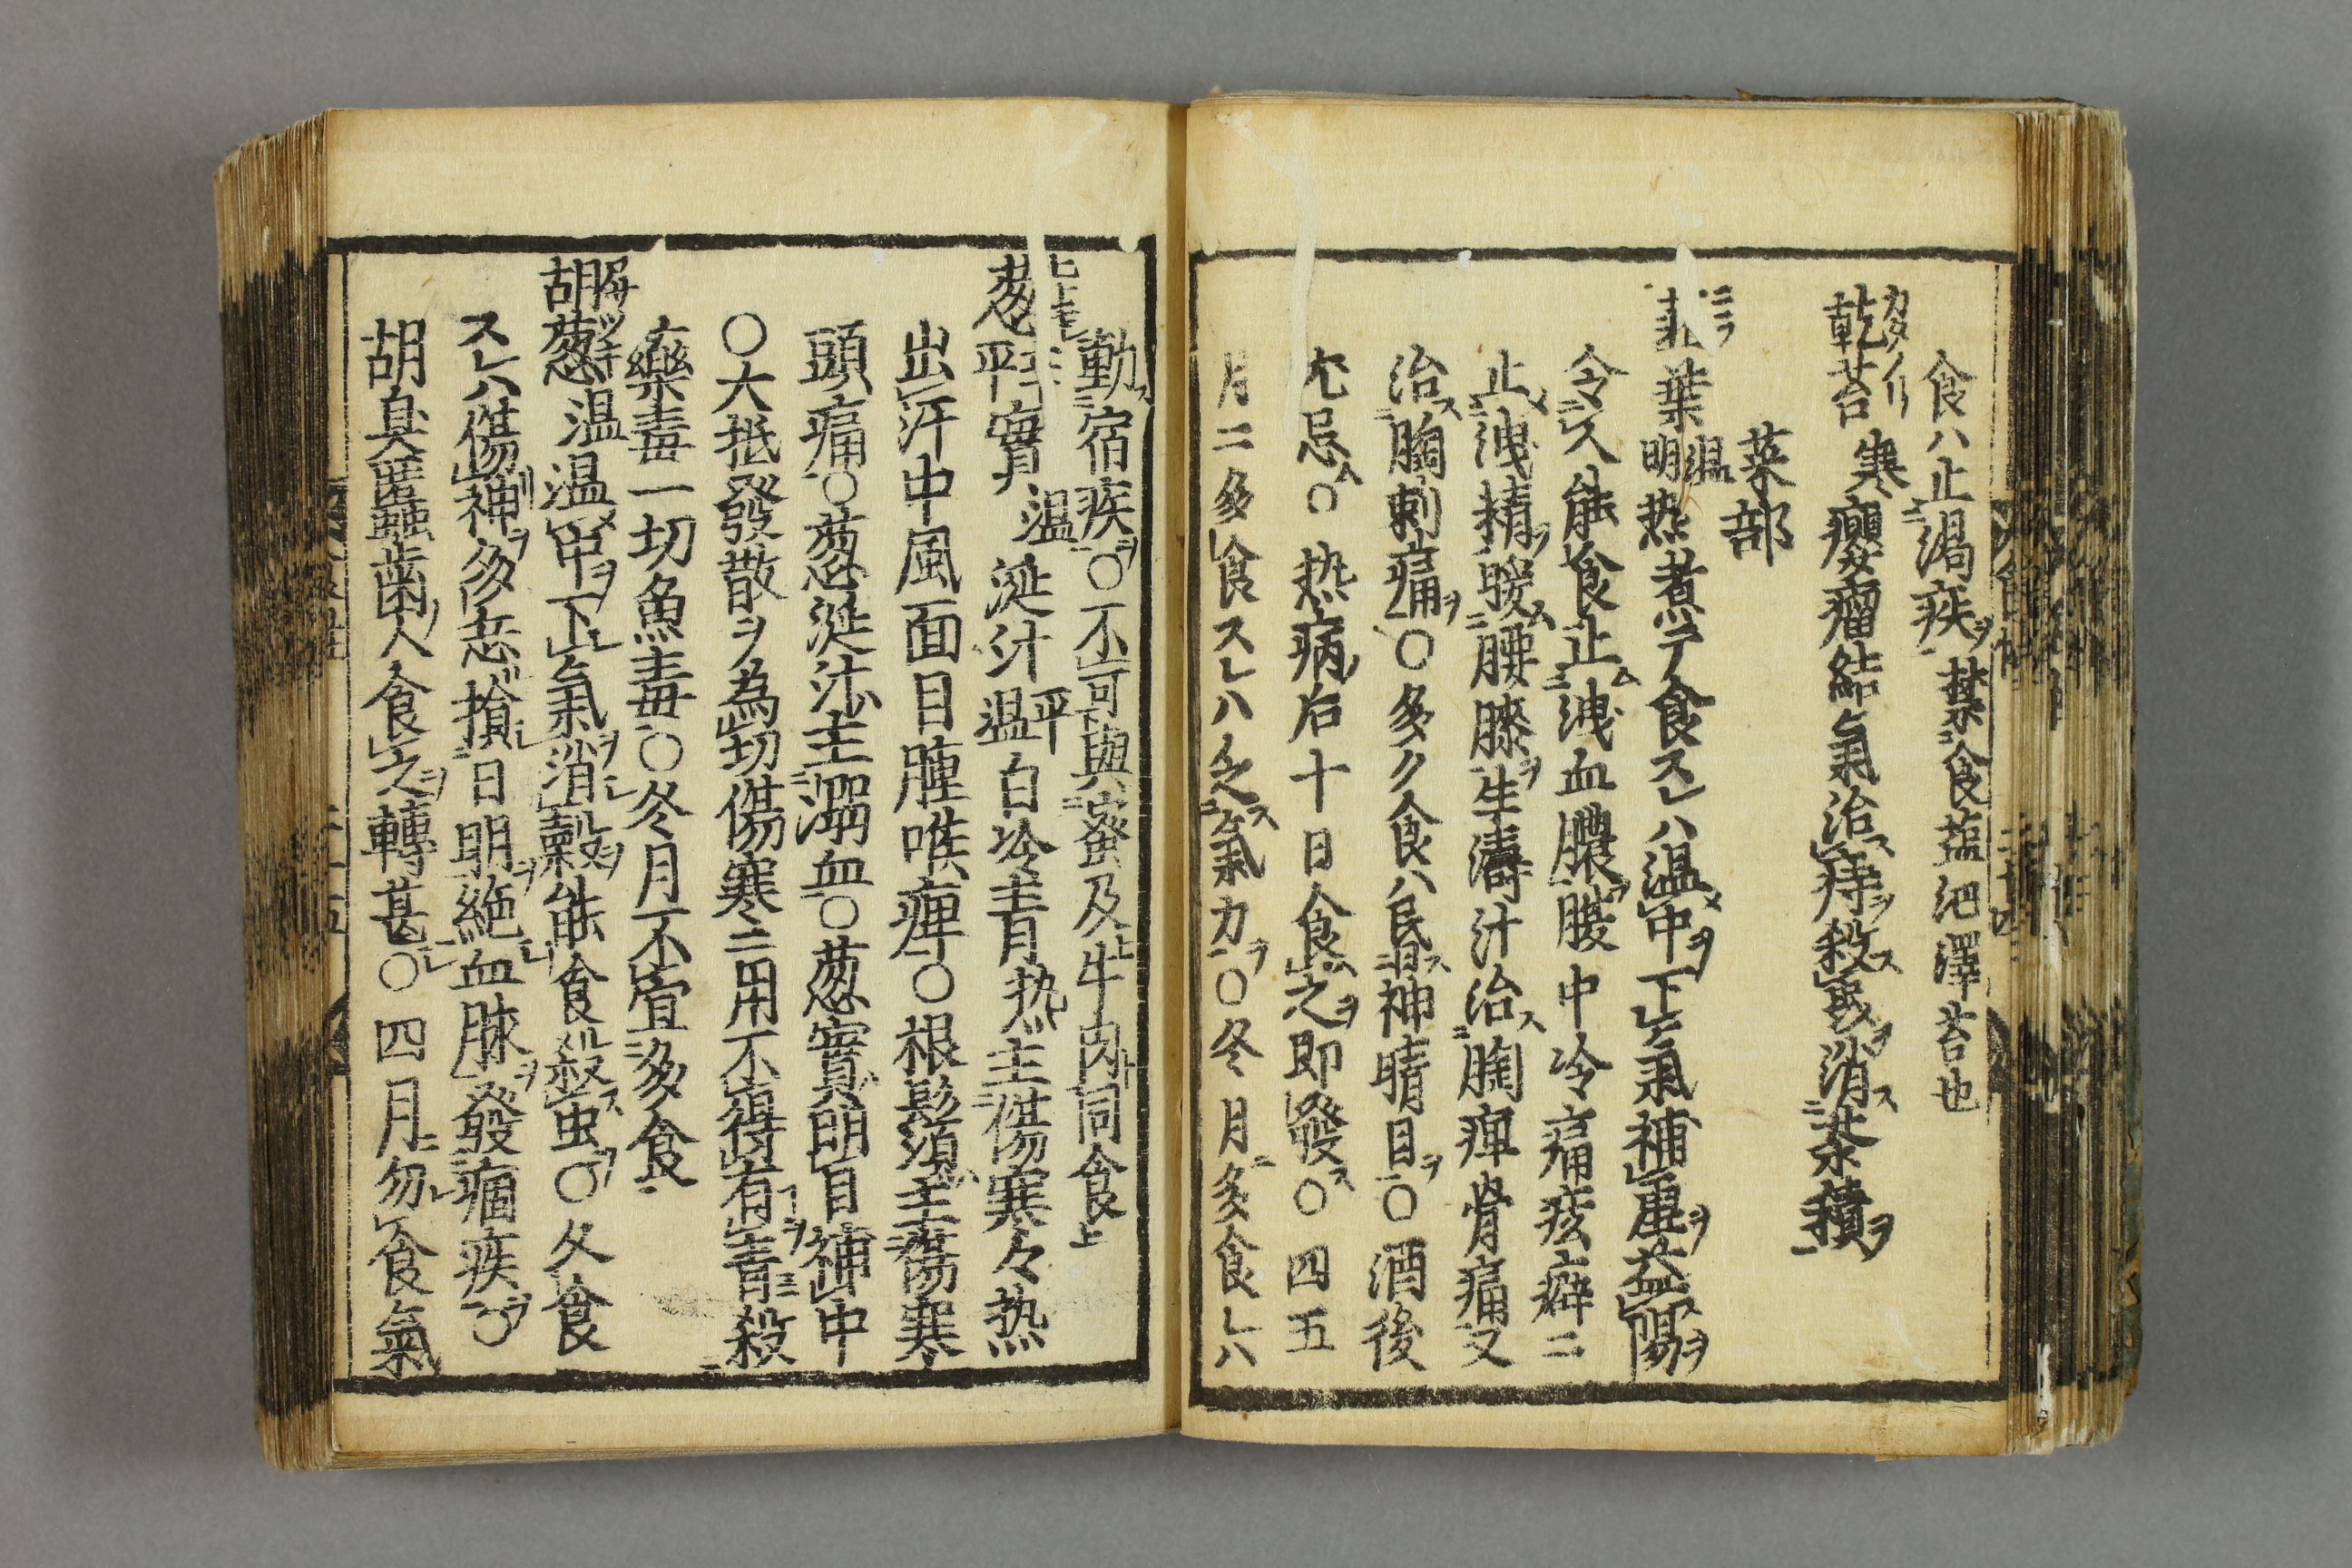 食ハ止渇疾ヲ禁食塩沺澤苔也
乾苔 寒 癭瘤結氣治痔殺虫ヲ消茶積ヲ
菜部
葉 温 明熱 煮テ食スレハ温中ヲ下氣補虚ヲ益陽ヲ
令人能食止洩血膿腰中冷痛痃癖ニ
止洩精ヲ暖腰膝ヲ生濤汁治胸痺骨痛又
治胸刺痛ヲ〇多ク食ハ昏神晴目ヲ〇酒後
尤忌〇熱病后十日食之ヲ即發ス〇四五
月ニ多食スレハ乏氣力ヲ〇冬月多食レハ
動宿疾ヲ〇不可與蜜及牛肉同食
葱 平 實 温 涎汁 平 温 白冷青熱主傷寒々熱
出汗中風面目腫喉痺〇根鬚須主傷寒
頭痛〇葱涎汁主溺血〇葱實明目補中
〇大抵發散ヲ為切傷寒ニ用不得有青殺
藥毒一切魚毒〇冬月不宜多食
胡葱 温 温中ヲ下氣ヲ消穀ヲ能食殺虫ヲ〇久食
スレハ傷神ヲ多忘損目明ヲ絶血脉ヲ發痼疾ヲ〇
胡臭䘌蟲歯人食之ヲ轉甚〇四月勿食氣